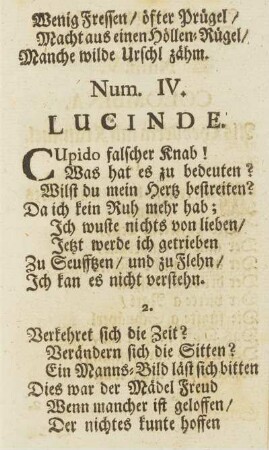 Wenig Fressen / öfter Prügel /
Macht aus einen Höllen-Rügel /
Manche wilde Urschl zähm.
Num. IV.
LUCINDE.
CUpido falscher Knab!
Was hat es zu bedeuten?
Wilst du mein Hertz bestreiten?
Da ich kein Ruh mehr hab;
Ich wuste nichts von lieben /
Jetzt werde ich getrieben
Zu Seufftzen / und zu Flehn /
Ich kan es nicht verstehn.
2.
Verkehret sich die Zeit?
Verändern sich die Sitten?
Ein Manns-Bild läst sich bitten
Dies war der Mädel Freud
Wenn mancher ist geloffen /
Der nichtes kunte hoffen